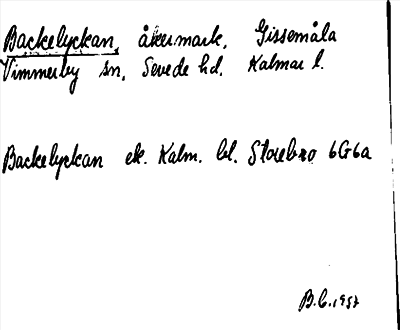 Backelyckan, åkermark, Gissemåla
Vimmerby sn, Sevede hd, Kalmar l.
Backelyckan ek. Kalm. bl. Storebro 6G6a
B.C. 1957